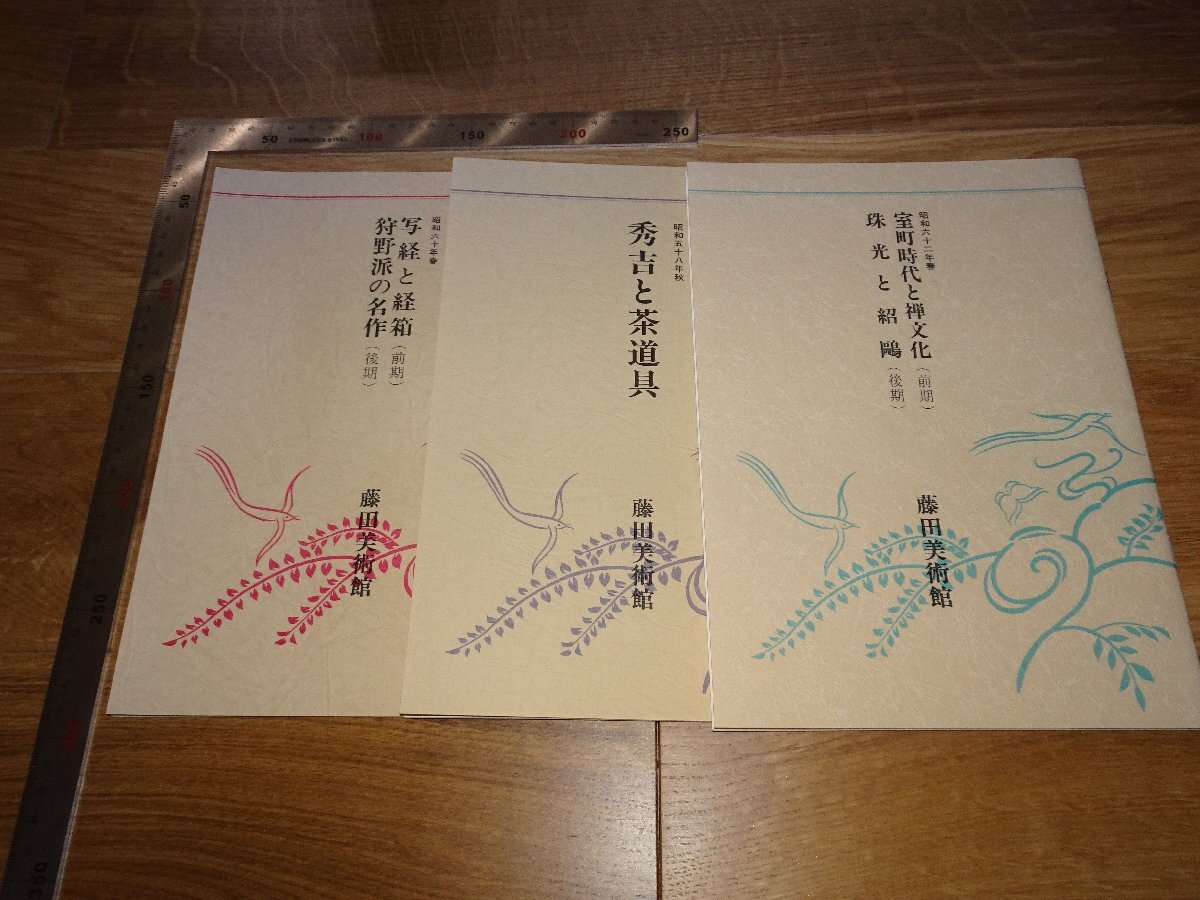 50 STAINLESS STEEL 100 150 200 250
50
100
150
250
350
昭和六十年春
写経と経箱(前期)
狩野派の名作(後期)
藤田美術館
昭和五十八年秋
秀吉と茶道具
藤田美術館
昭和六十二年春
室町時代と禅文化(前期)
珠光と紹鷗(後期)
藤田美術館